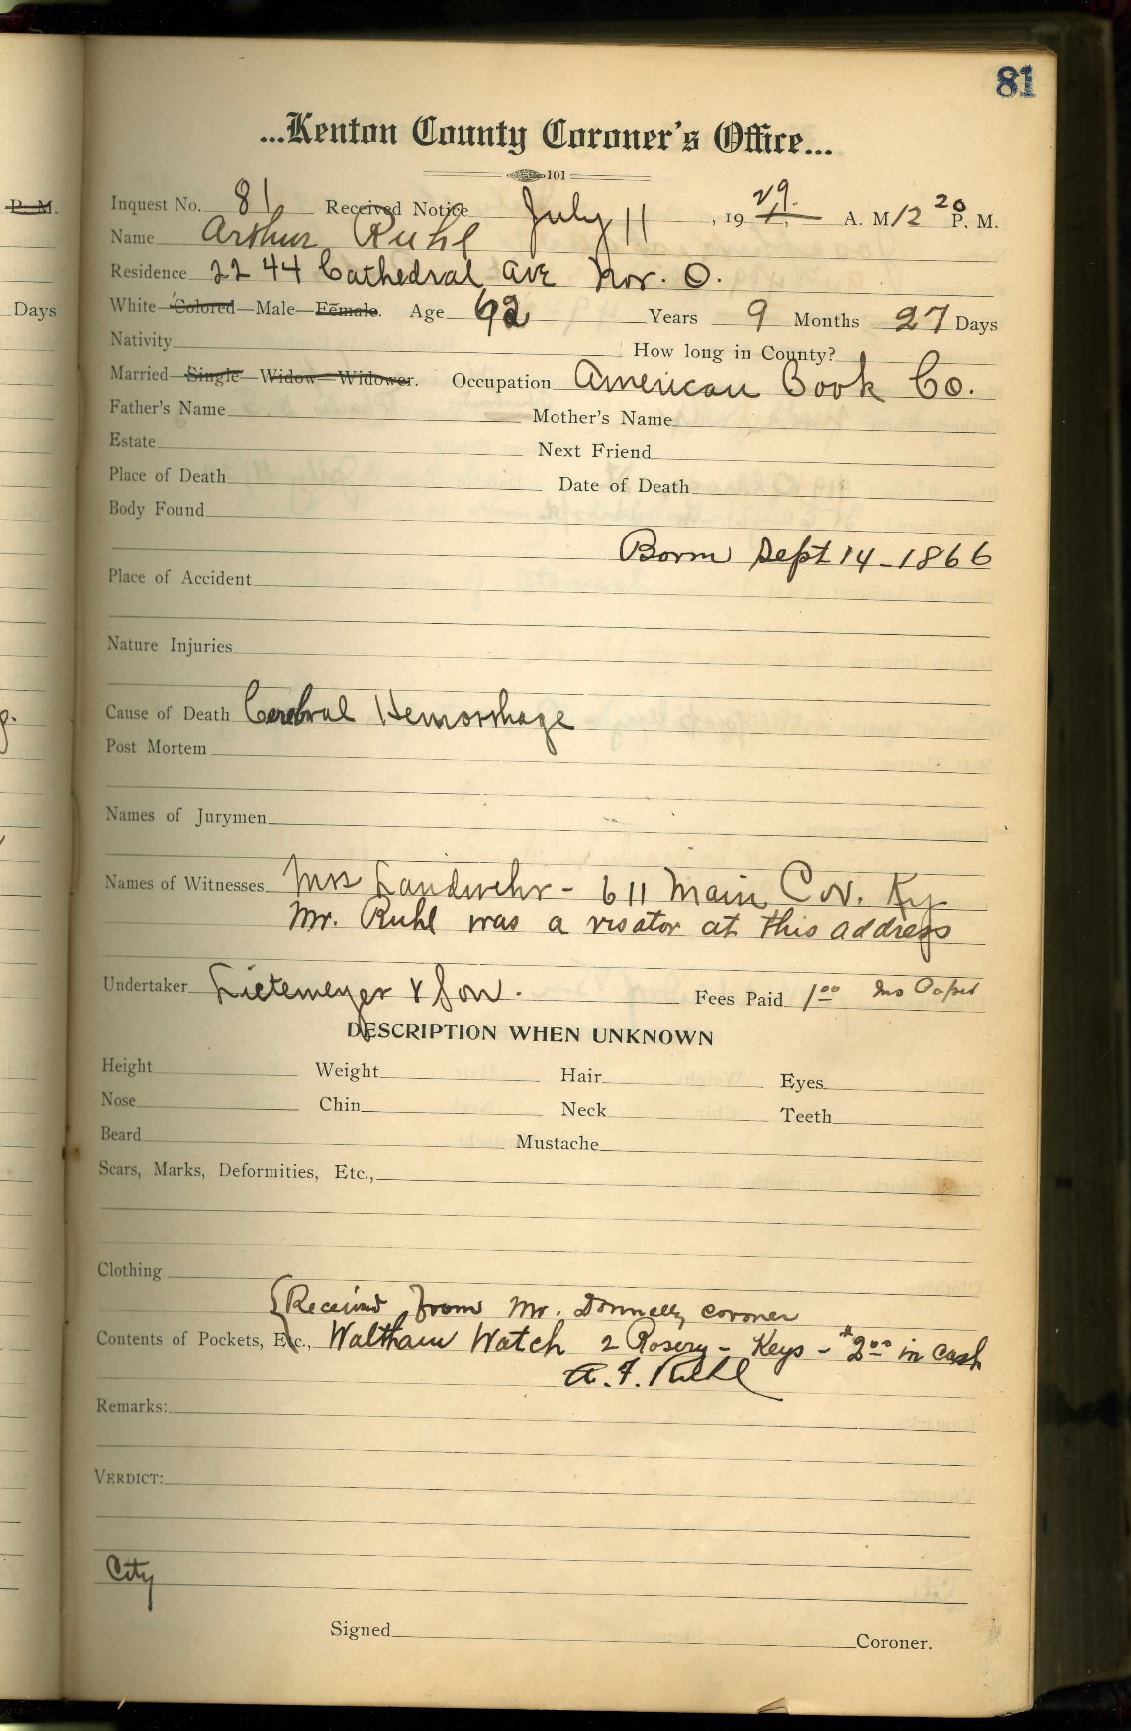 81
...Kenton County Coroner's Office...
101
P. M.
Inquest No. 81 Received Notice July 11, 19 29. A. M 12 20 P. M.
Name Arthur Ruhl
Residence 2244 Cathedral ave Nor. O.
Days
White—Colored—Male—Female. Age 62 Years 9 Months 27 Days
Nativity How long in County?
Married—Single—Widow—Widower. Occupation American Book Co.
Father's Name Mother's Name
Estate Next Friend
Place of Death Date of Death
Body Found
Born Sept 14-1866
Place of Accident
Nature Injuries
Cause of Death Cerebral Hemorrhage
Post Mortem
Names of Jurymen
Names of Witnesses Mrs Landwehr - 611 Main Cov. Ky
Mr. Ruhl was a visator at this address
Undertaker Lietemeyer & Son. Fees Paid 1.00 no
DESCRIPTION WHEN UNKNOWN
Height Weight Hair Eyes
Nose Chin Neck Teeth
Beard Mustache
Scars, Marks, Deformities, Etc.,
Clothing
{Received from Mr. Donnelly coroner
Contents of Pockets, Etc., Waltham Watch 2 Rosery - Keys - $2.00 in cash
A. F. Ruhl
Remarks:
VERDICT:
City
Signed Coroner.